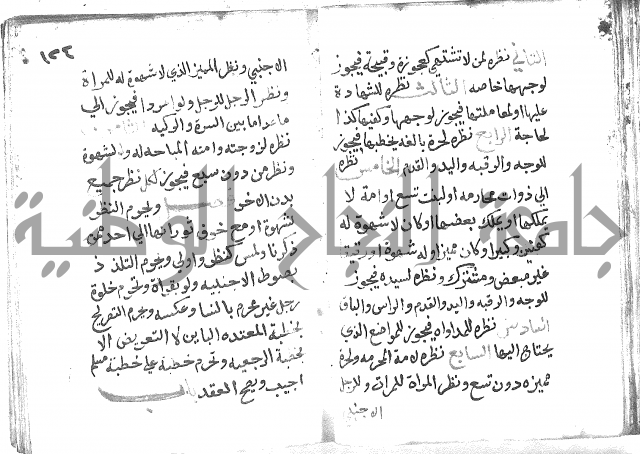 الثاني نظره لمن لا تشتهي كعجوزة وقبيحة فيجوز
لوجهها خاصه الثالث نظره للشهادة
عليها او لمعاملتها فيجوز لوجهها وكفيها كذا
لحاجة الرابع نظره لحرة بالغه يخطبها فيجوز
للوجه والرقبه واليد والقدم الخامس نظره
الي ذوات محارمه او لبنت تسع او امة لا
يملكها او يملك بعضها او كان لا شهوة له
كعنين وكبير او كان مميزا وله شهوة او رقيقا
غير مبعض ومشترك ونظره لسيدته فيجوز
للوجه والرقبه واليد والقدم والراس والساق
السادس نظره للمداواه فيجوز للمواضع الذي
يحتاج اليها السابع نظره لامة المحرمه ولحرة
مميزه دون تسع ونظر المراة للمراة وللرجل
الاجنبي
١٣٢
الاجنبي ونظر المميز الذي لا شهوة له للمراة
ونظر الرجل للرجل ولو امرد فيجوز الي
ماعدا ما بين السرة والركبه الثامن
نظره لزوجته وامته المباحه له ولو لشهوة
ونظر من دون سبع فيجوز لكل نظر جميع
بدن الاخر فصل ويحرم النظر
لشهوة او مع خوف ثورانها الي احد ممن
ذكرنا ولمس كنظر واولي ويحرم التلذذ
بصوت الاجنبيه ولو بقراة وتحرم خلوة
رجل غير محرم بالنسا وعكسه ويحرم التصريح
بخطبة المعتده الباين لا التعريض الا
لخطبة الرجعيه وتحرم خطبة علي خطبة مسلم
اجيب ويصح العقد باب
جامعة النجاح الوطنية